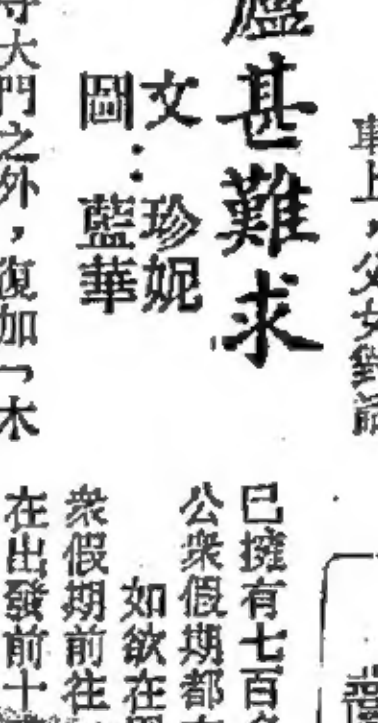 車上，父女對話
廬甚難求
文：珍妮
圖：藍華
大門之外，復加「木
已擁有七百
公衆假期都
如欲在
衆假期前往
在出發前十